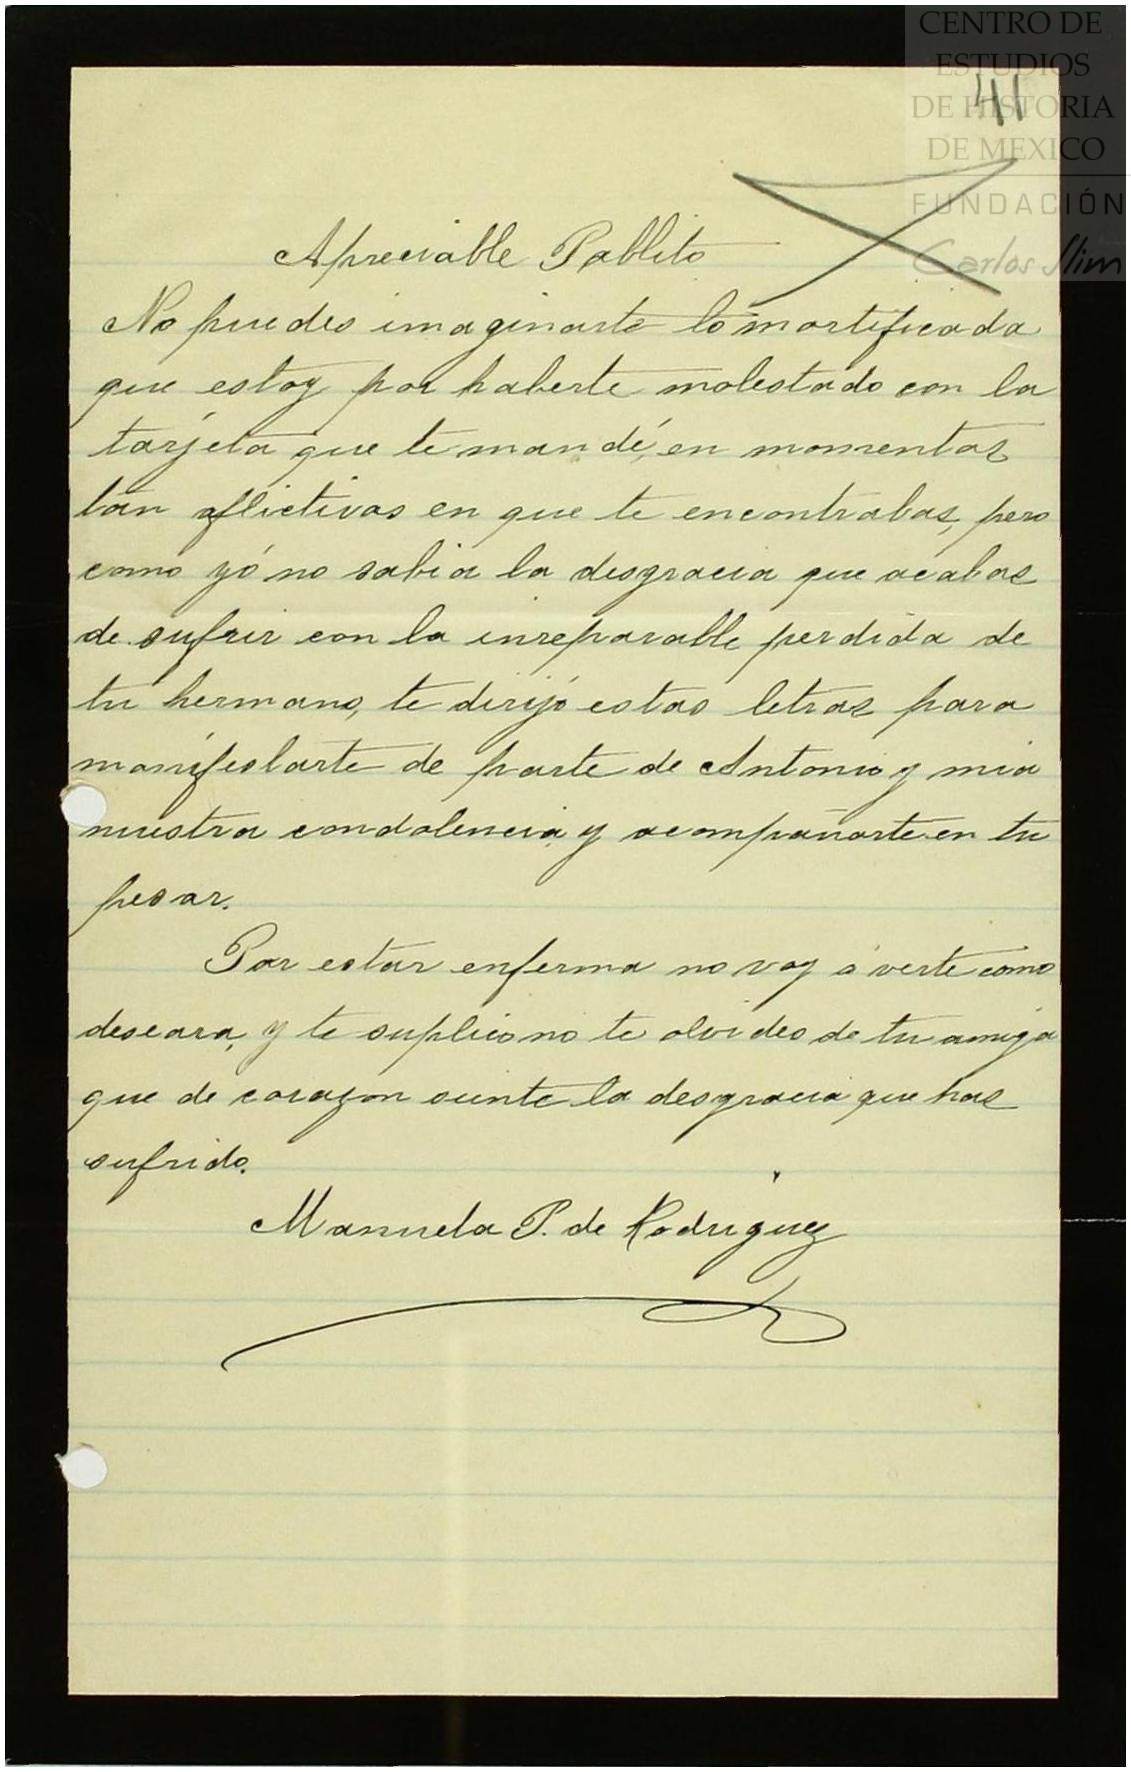 CENTRO DE
ESTUDIOS
DE HISTORIA
DE MEXICO
FUNDACIÓN
Carlos Slim
41
Apreciable Pablito
No puedes imaginarte lo mortificada
que estoy por haberte molestado con la
tarjeta que te mandé, en momentos
tan aflictivos en que te encontrabas, pero
como yó no sabia la desgracia que acabas
de sufrir con la inreparable perdida de
tu hermano, te dirijo estas letras para
manifestarte de parte de Antonio y mia
nuestra condolencia y acompañarte en tu
pesar.
Por estar enferma no voy á verte como
deseara, y te suplico no te olvides de tu amiga
que de corazon siente la desgracia que has
sufrido.
Manuela P. de Rodriguez